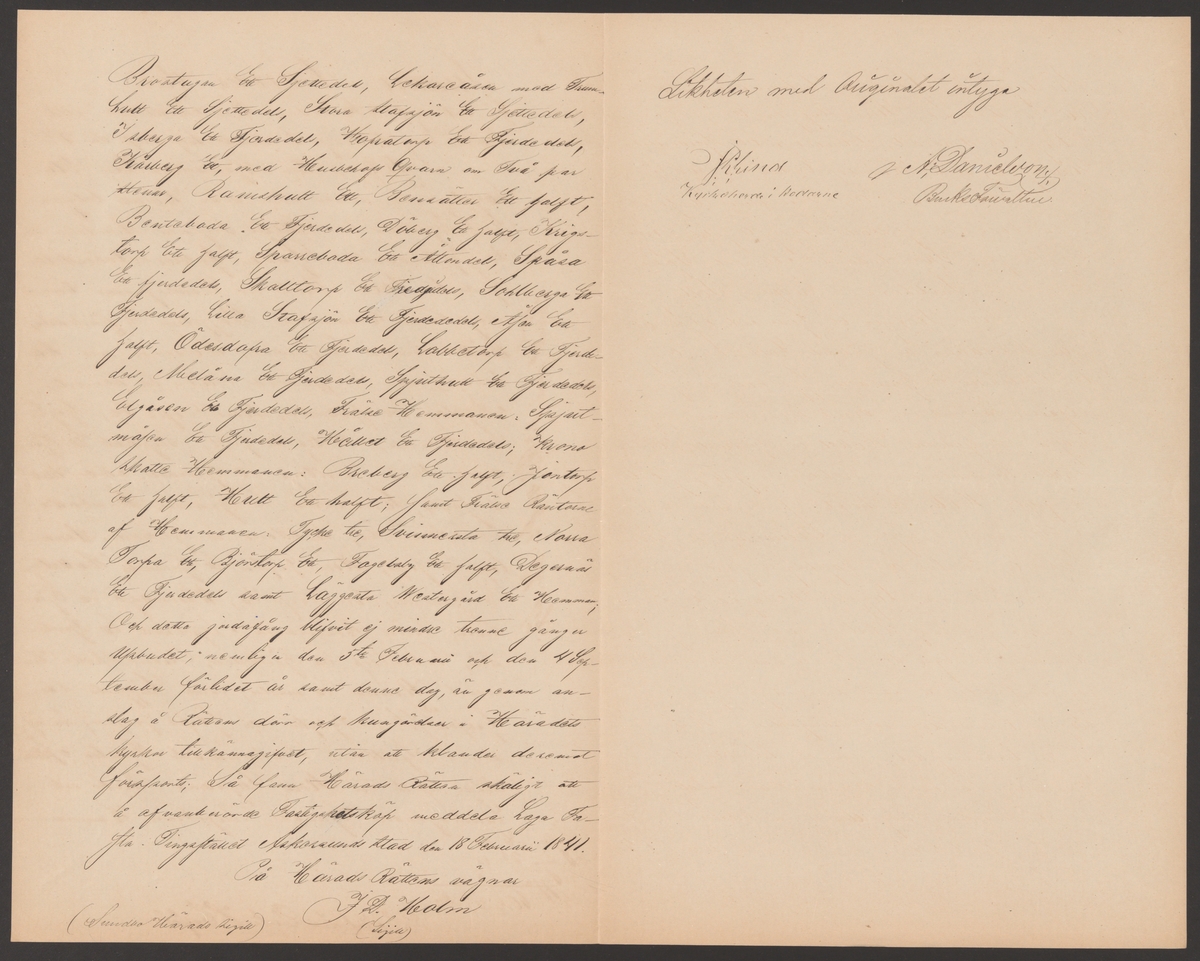 Brostugan Ett Sjettedel, Lekareåsen med Trum-
hult Ett Sjettedel, Stora Stafsjön Ett Sjettedel,
Isberga Ett Fjerdedel, Ett Fjerdedel,
Kårberg Ett, med Qvarn om Två par
stenar, Ramshult Ett, Bensätter Ett halft,
Benteboda Ett Fjerdedel, Döberg Ett halft, Krigs-
torp Ett halft, Sparreboda Ett Åttondel, Spåsa
Ett fjerdedel, Skalltorp Ett Tredjedel, Sohlberga Ett
Fjerdedel, Lilla Stafsjön Ett Fjerdedel, Åsen Ett
halft, Ett Fjerdedel, Lobbetorp Ett Fjerde-
del, Ett Fjerdedel, Spjuthult Ett Fjerdedel,
Elgåsen Ett Fjerdedel, Frälse Hemmanen: Spjut-
måsen Ett Fjerdedel, Hället Ett Fjerdedel; Krono
skatte Hemmanen: Breberg Ett halft, Jontorp
Ett halft, Hult Ett halft; samt Frälse Räntorne
af Hemmanen: Tycke tre, Svinnersta tre, Norra
Torpa Ett, Björstorp Ett, Fageboly Ett halft, Degernäs
Ett Fjerdedel samt Läggesta Westergård Ett Hemman;
Och detta jordafång blifvit ej mindre trenne gånger
Upbudet, nemligen den 5te Februarii och den 4 Sep-
tember förlidet år samt denne dag, än genom an-
slag å Rättens dörr och kungörelser i Häradets
kyrkor tillkännagifvet, utan att klander deremot
försports; Så fann Härads Rätten skäligt att
å ofvanberörde Fastighetsköp meddela Laga Fa-
sta. Tingsstället Askersunds stad den 18 Februarii 1841.
På Härads Rättens vägnar
J D. Holm
(Sundbo Härads Sigill) (Sigill)
Likheten med Originalet intyga
Lind A, Danielson,
Kyrkoherde i Bruks Förvaltare